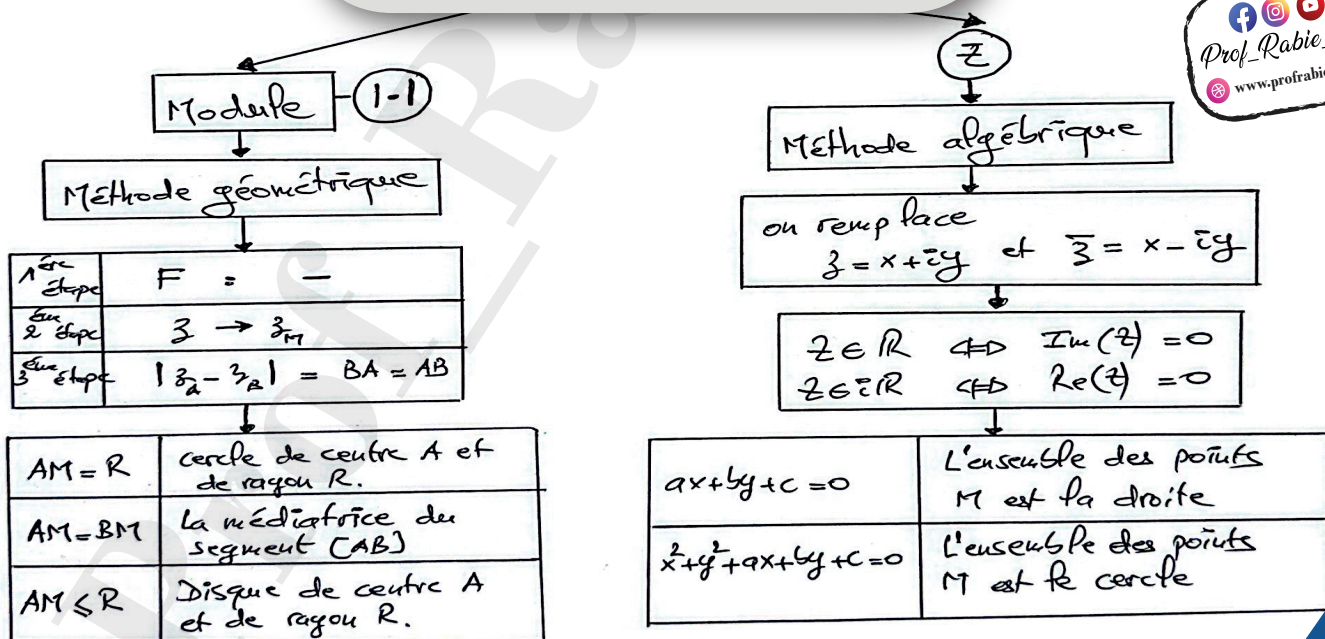 Module
|-|
Méthode géométrique
1ère étape
F = —
2ème étape
z → z_M
3ème étape
|z_A - z_B| = BA = AB
AM = R
cercle de centre A et
de rayon R.
AM = BM
La médiatrice du
segment [AB]
AM ≤ R
Disque de centre A
et de rayon R.
Z
Méthode algébrique
on remplace
z = x + iy et z̄ = x - iy
Z ∈ ℝ ⟺ Im(Z) = 0
Z ∈ iℝ ⟺ Re(Z) = 0
ax + by + c = 0
L'ensemble des points
M est la droite
x² + y² + ax + by + c = 0
L'ensemble des points
M est le cercle
Prof_Rabie_
www.profrabie
Prof_Ra